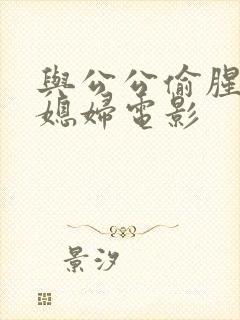 與公公偷腥
媳婦電影
景汐